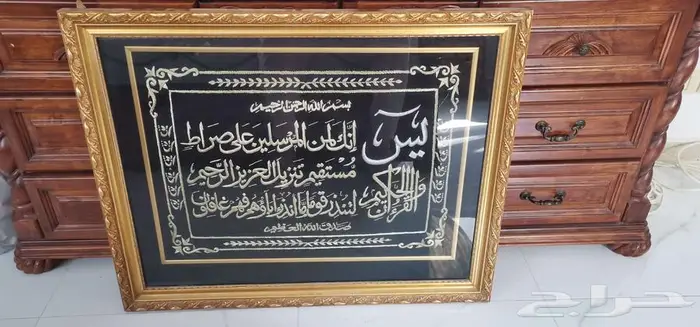 بسم الله الرحمن الرحيم
يس
والقرآن الحكيم
إنك لمن المرسلين على صراط
مستقيم تنزيل العزيز الرحيم
لتنذر قوما ما أنذر آباؤهم فهم غافلون
صدق الله العظيم
حراج